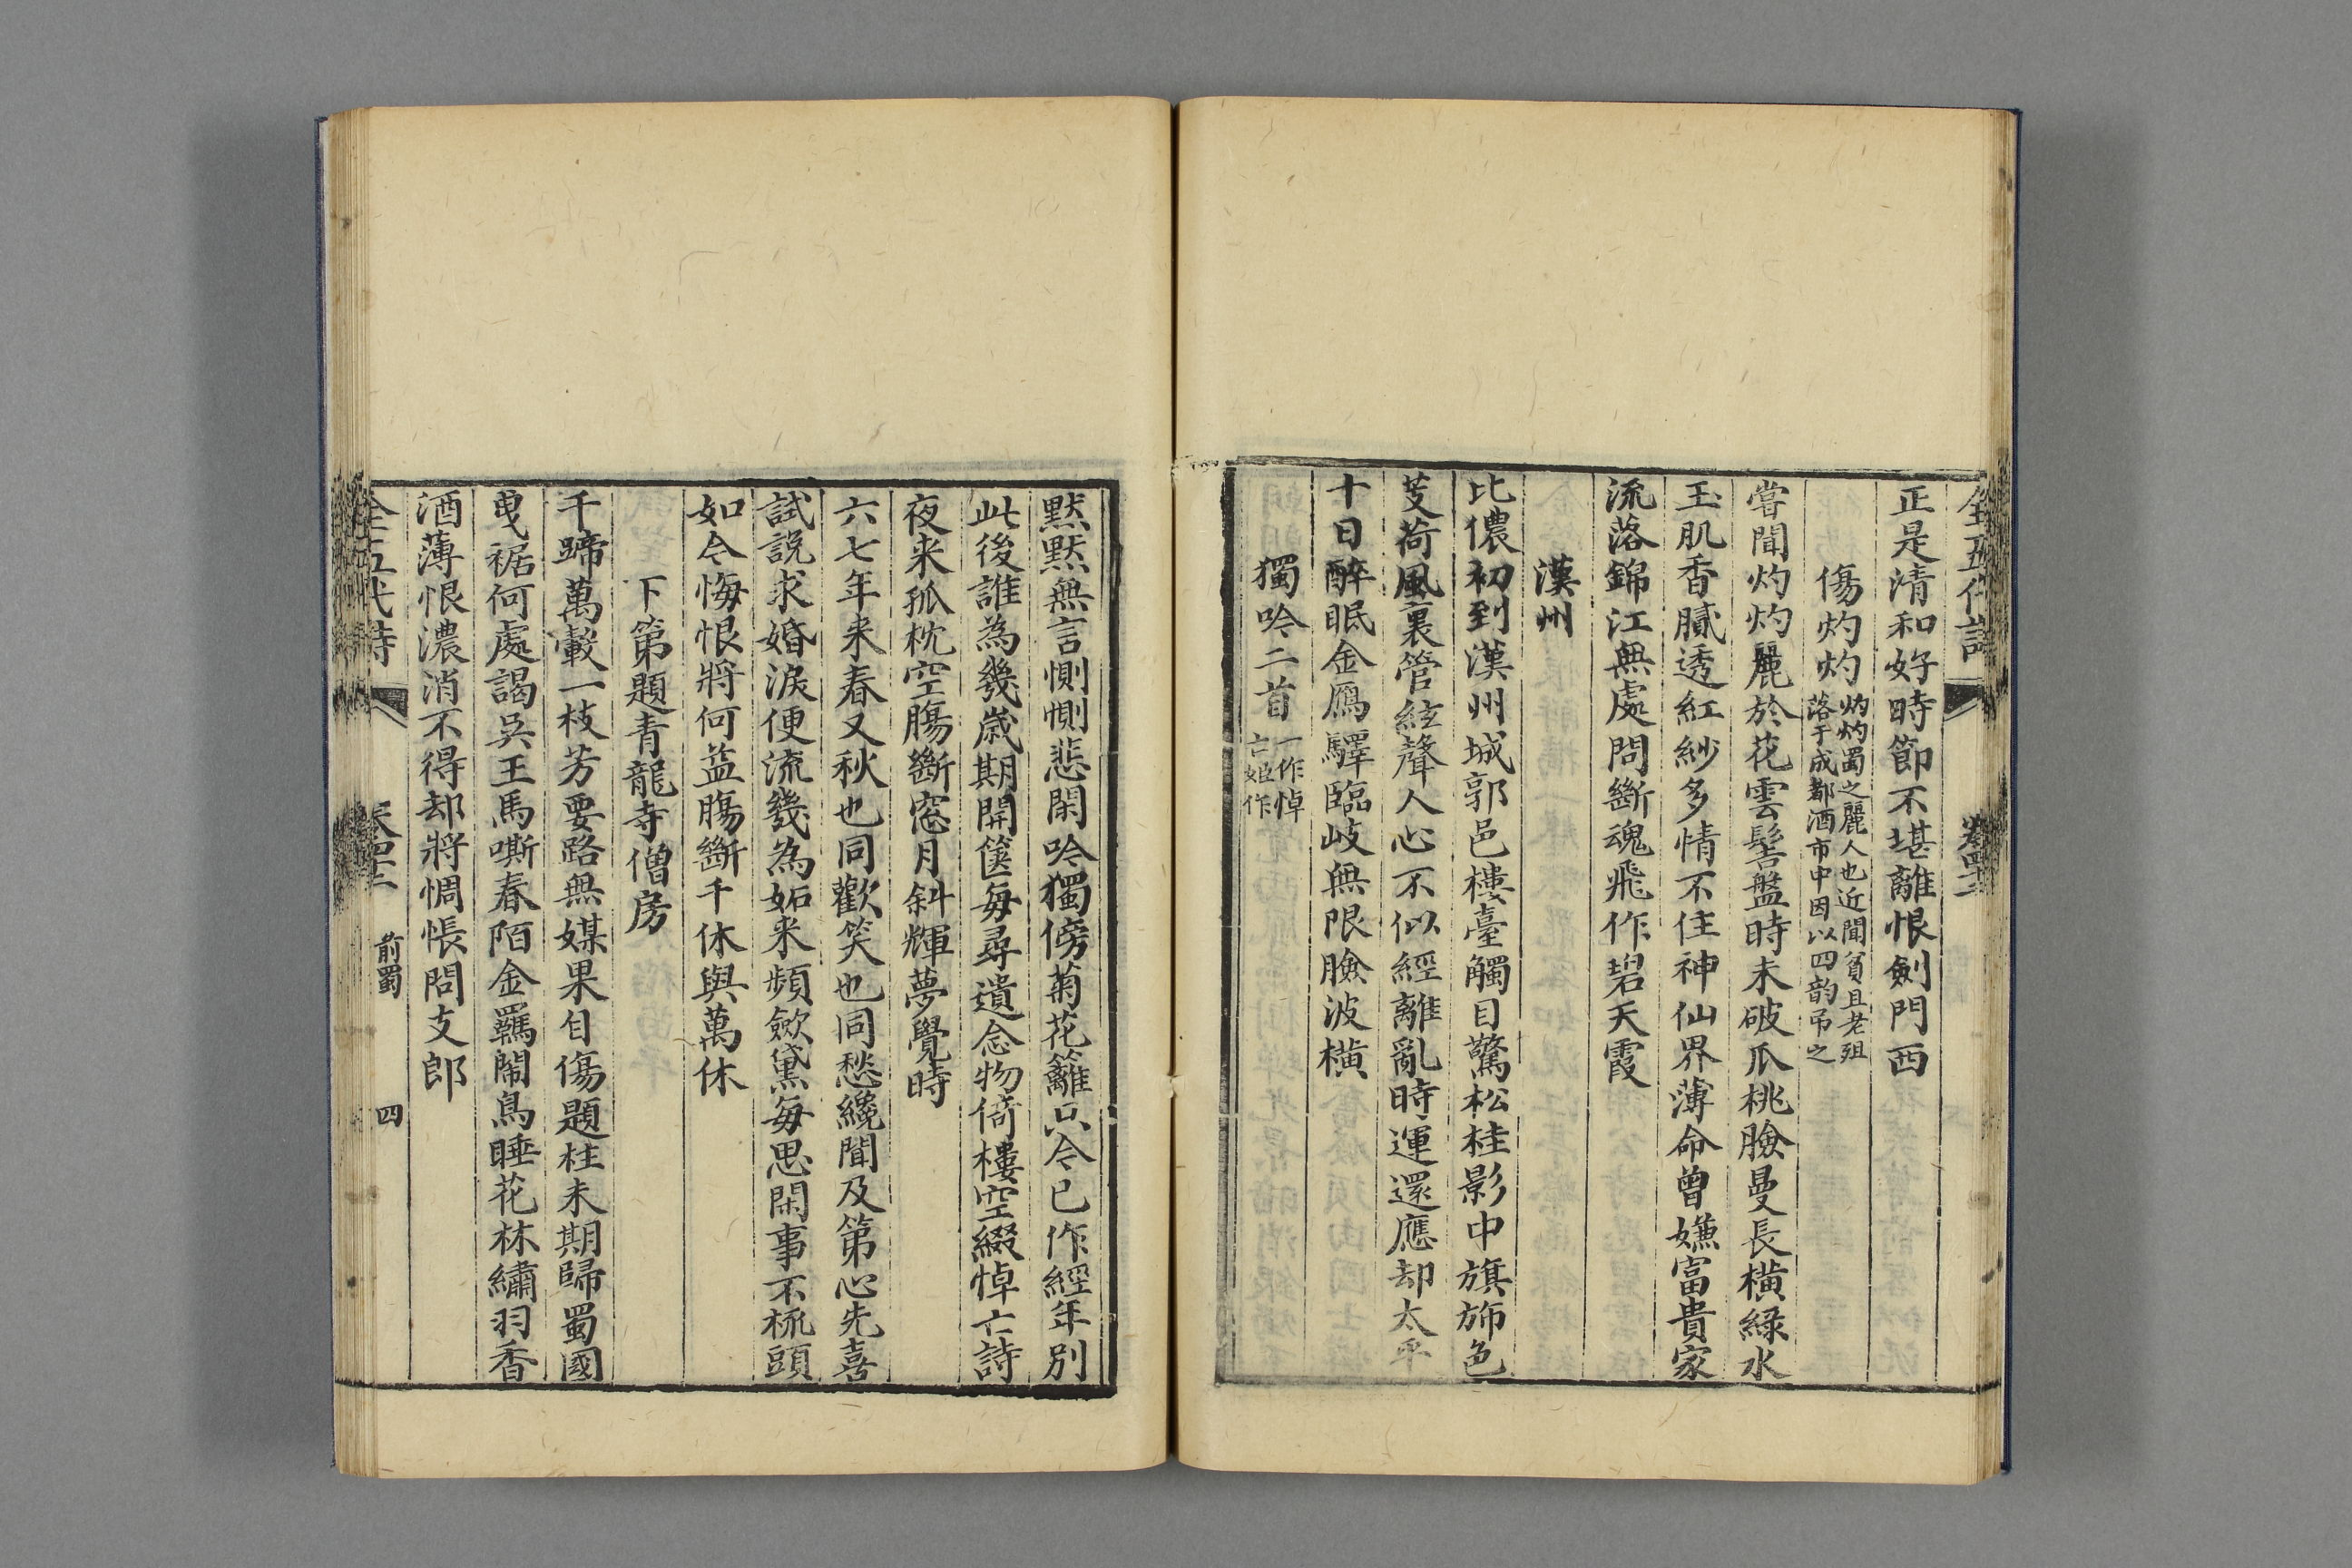 全五代詩
正是清和好時節不堪離恨劍門西
傷灼灼 灼灼蜀之麗人也近聞貧且老殂
落于成都酒市中因以四韵吊之
嘗聞灼灼麗於花雲髻盤時未破瓜桃臉曼長橫綠水
玉肌香膩透紅紗多情不住神仙界薄命曾嫌富貴家
流落錦江無處問斷魂飛作碧天霞
漢州
比儂初到漢州城郭邑樓臺觸目驚松桂影中旗斾色
芰荷風裏管絃聲人心不似經離亂時運還應却太平
十日醉眠金鴈驛臨岐無限臉波橫
獨吟二首 一作悼
亡姬作
默默無言惻惻悲閑吟獨傍菊花籬只今已作經年別
此後誰為幾歲期開篋每尋遺念物倚樓空綴悼亡詩
夜来孤枕空腸斷窓月斜輝夢覺時
六七年来春又秋也同歡笑也同愁纔聞及第心先喜
試說求婚淚便流幾為妬来頻歛黛每思閑事不梳頭
如今悔恨將何益腸斷千休與萬休
下第題青龍寺僧房
千蹄萬轂一枝芳要路無媒果自傷題柱未期歸蜀國
曳裾何處謁吳王馬嘶春陌金羈閙鳥睡花林繡羽香
酒薄恨濃消不得却將惆悵問支郎
全五代詩
前蜀
四